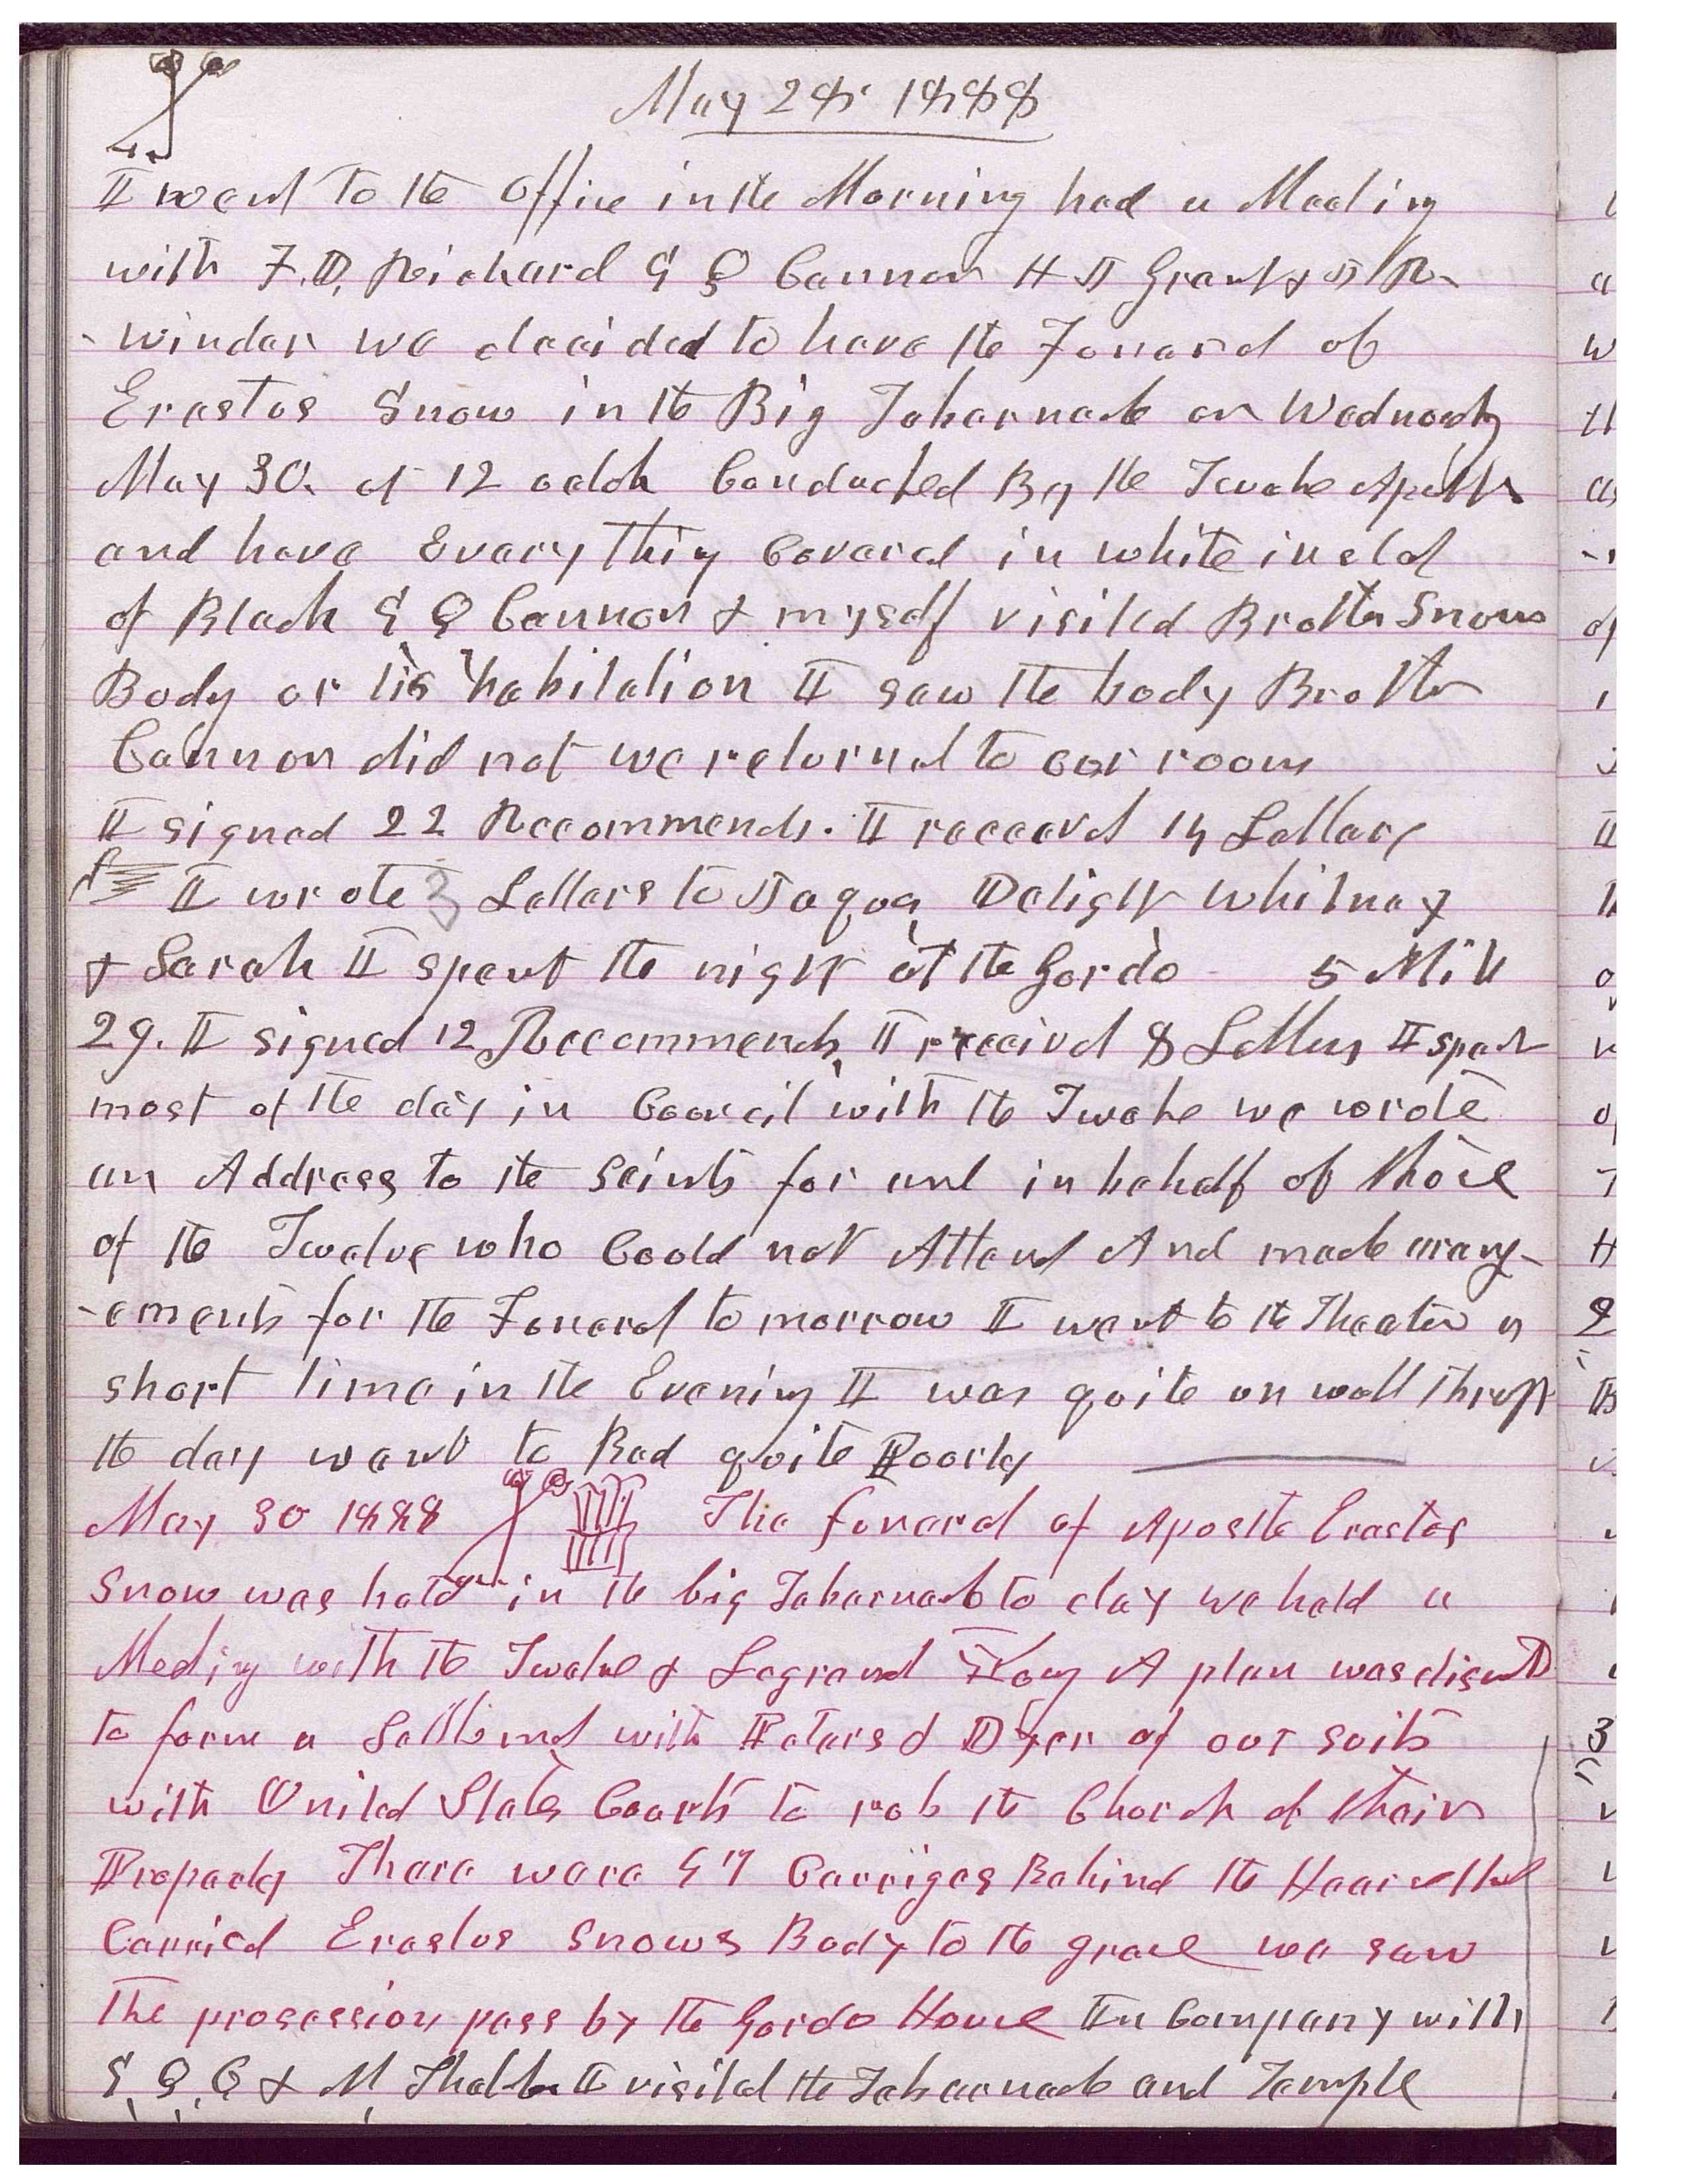 May 28, 1888
I went to the office in the Morning had a Meeting
with F. D. Richard G Q Cannon H J Grant & J R
- winder we decided to have the Funeral of
Erastus Snow in the Big Tabernacle on Wednesdy
May 30. at 12 oclok Conducted By the Twelve Apostls
and have Every thing Covered in white insted
of Black G Q Cannon & myself visited Brother Snows
Body or his habitation I saw the body Brother
Cannon did not we returnd to our room
I signed 22 Recommends. I receevd 14 Letters
I wrote 3 Letters to Jaques, Delight Whitney
& Sarah I spent the night at the Gardo 5 Mils
29. I signed 12 Recommends, I receivd 8 Letters I spent
most of the day in Council with the Twelve we wrote
an Address to the Saints for and in behalf of those
of the Twelve who Could not Attend And made arang-
-ements for the Funeral to morrow I went to the Theater a
short time in the Evening I was quite un well through
the day went to Bed quite Poorly
May 30 1888 The funeral of Apostle Erastus
Snow was held in the big Tabernacle to day we held a
Meeting with the Twelve & Legrand Young A plan was discusd
to form a Settlemet with Peters & Dyer of our suits
with United States Courts to rob the Church of their
Property There were 67 Carriges Behind the Hearse that
Carried Erastus Snows Body to the grave we saw
the prosession pass by the Gardo House In Company with
G. Q. C & M Thatcher I visited the Tabernacle and Temple